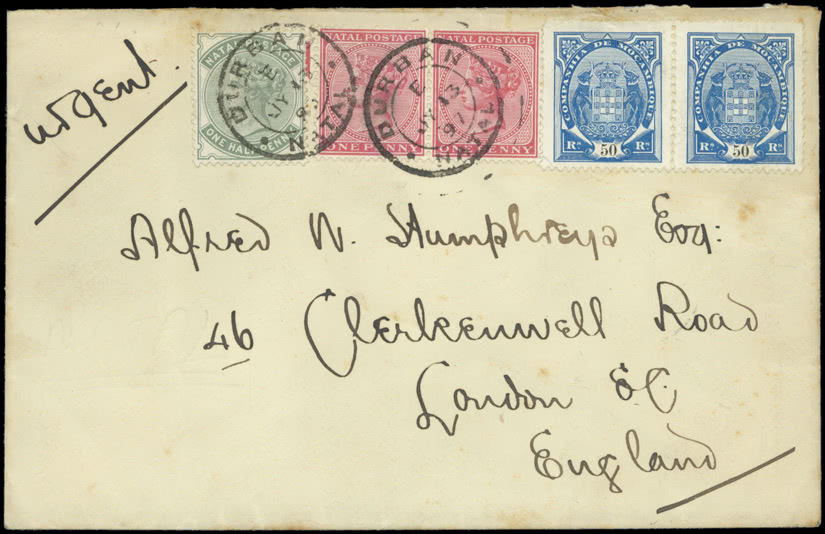 urgent.
NATAL POSTAGE
ONE HALFPENNY
NATAL POSTAGE
ONE PENNY
NATAL POSTAGE
ONE PENNY
DURBAN
E
JY 13
97
NATAL
DURBAN
E
JY 13
97
NATAL
COMPANHIA DE MOÇAMBIQUE
Rs. 50 Rs.
COMPANHIA DE MOÇAMBIQUE
Rs. 50 Rs.
Alfred W. Humphreys Esq:
46 Clerkenwell Road
London E.C.
England